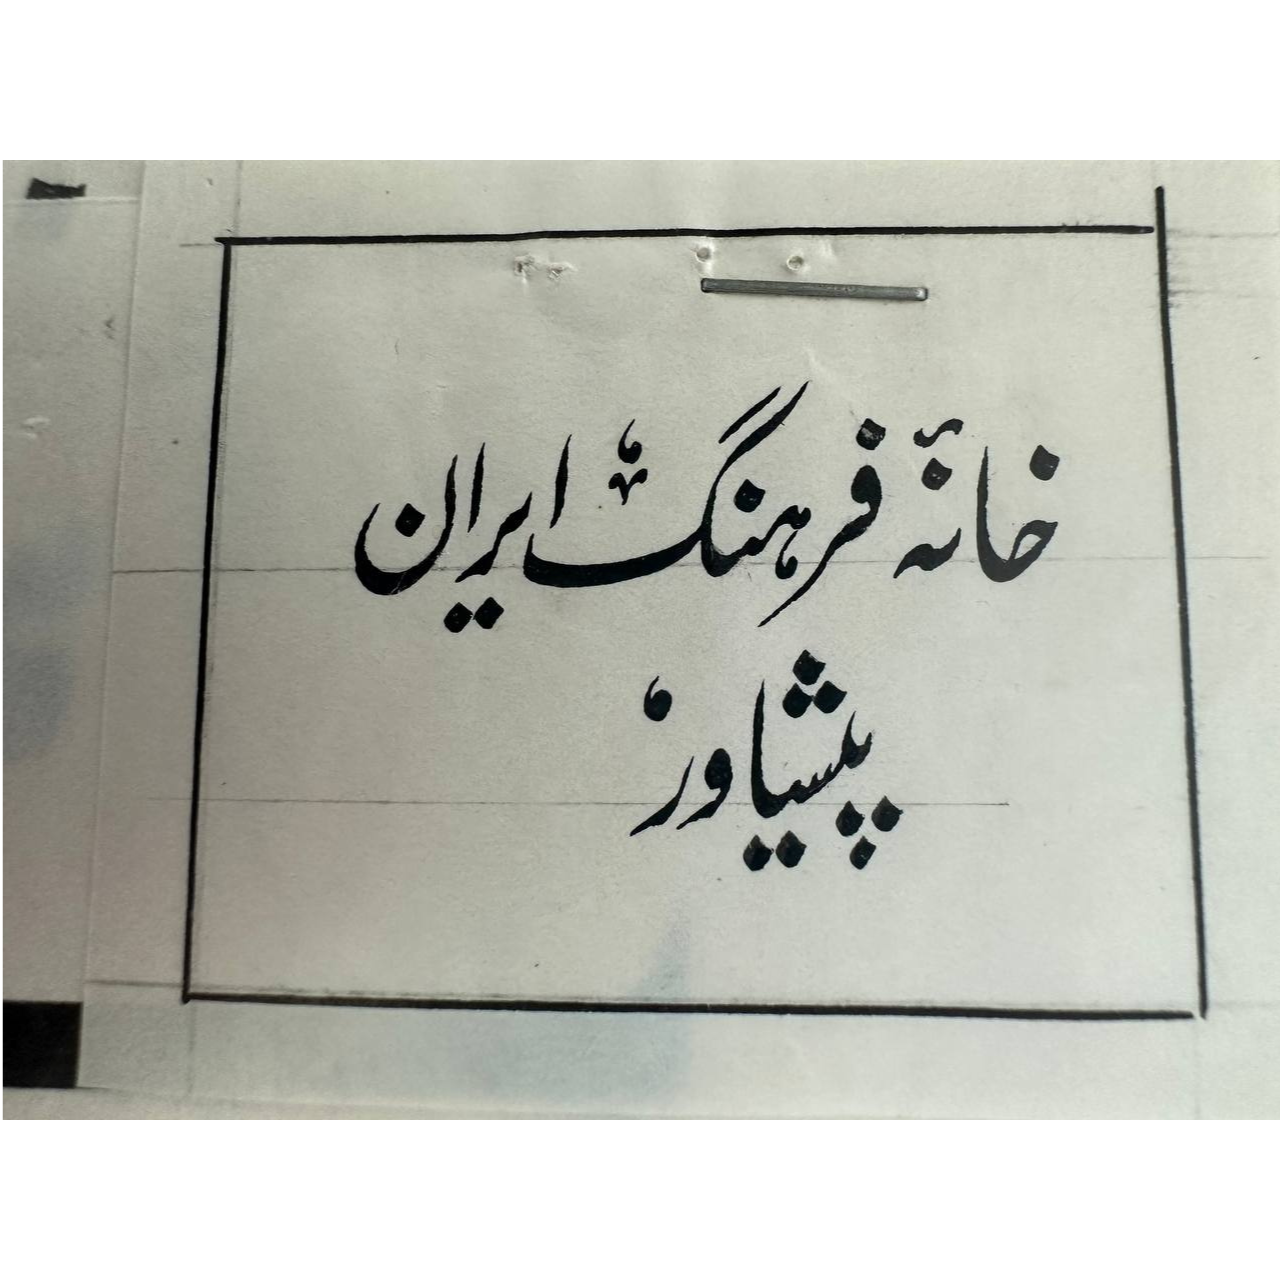 خانۂ فرہنگ ایران
پشاور